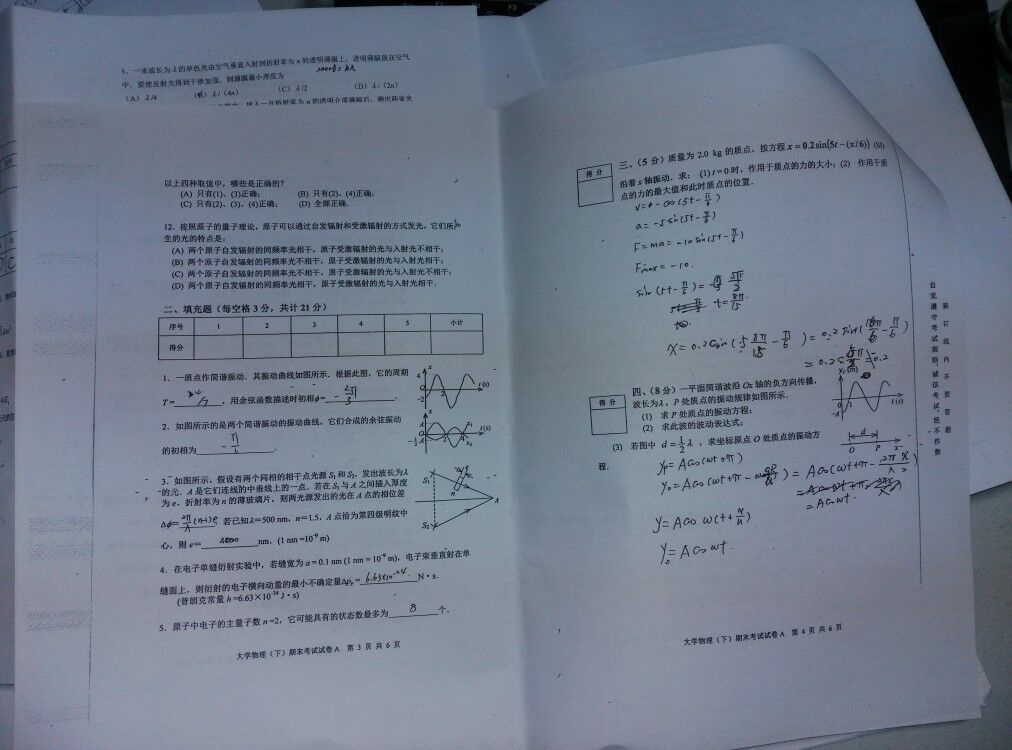 5、一束波长为 λ 的单色光由空气垂直入射到折射率为 n 的透明薄膜上，透明薄膜放在空气
中，要使反射光得到干涉加强，则薄膜最小厚度为
(A) λ/4 (B) λ/(4n) (C) λ/2 (D) λ/(2n)
以上四种取值中，哪些是正确的？
(A) 只有(1)、(3)正确； (B) 只有(2)、(4)正确；
(C) 只有(2)、(3)、(4)正确； (D) 全部正确.
12、按照原子的量子理论，原子可以通过自发辐射和受激辐射的方式发光，它们所产
生的光的特点是：
(A) 两个原子自发辐射的同频率光相干，原子受激辐射的光与入射光不相干；
(B) 两个原子自发辐射的同频率光不相干，原子受激辐射的光与入射光相干；
(C) 两个原子自发辐射的同频率光不相干，原子受激辐射的光与入射光不相干；
(D) 两个原子自发辐射的同频率光相干，原子受激辐射的光与入射光相干.
二、填充题（每空格 3 分，共计 21 分）
序号 1 2 3 4 5 小计
得分
1、一质点作简谐振动．其振动曲线如图所示．根据此图，它的周期
T= 24/7 ，用余弦函数描述时初相φ=
2、如图所示的是两个简谐振动的振动曲线，它们合成的余弦振动
的初相为
3、如图所示，假设有两个同相的相干点光源 S₁ 和 S₂，发出波长为λ
的光．A 是它们连线的中垂线上的一点．若在 S₁ 与 A 之间插入厚度
为 e、折射率为 n 的薄玻璃片，则两光源发出的光在 A 点的相位差
Δφ= 2π/λ (n-1)e 若已知λ=500 nm，n=1.5，A 点恰为第四级明纹中
心，则 e= 4000 nm．(1 nm =10⁻⁹ m)
4、在电子单缝衍射实验中，若缝宽为 a=0.1 nm (1 nm = 10⁻⁹ m)，电子束垂直射在单
缝面上，则衍射的电子横向动量的最小不确定量Δp_y= 6.63×10⁻²⁴ N·s.
(普朗克常量 h =6.63×10⁻³⁴ J·s)
5、原子中电子的主量子数 n=2，它可能具有的状态数最多为 8 个．
大学物理（下）期末考试试卷 A 第 3 页 共 6 页
得分
三、（5 分）质量为 2.0 kg 的质点，按方程 x = 0.2 sin[5t − (π/6)] (SI)
沿着 x 轴振动．求：(1) t = 0 时，作用于质点的力的大小；(2) 作用于质
点的力的最大值和此时质点的位置．
a = -5 sin(5t - π/6)
F = ma = -10 sin(5t - π/6)
Fmax = -10.
得分
四、（8 分）一平面简谐波沿 Ox 轴的负方向传播，
波长为λ，P 处质点的振动规律如图所示．
(1) 求 P 处质点的振动方程；
(2) 求此波的波动表达式；
(3) 若图中 d = ½ λ，求坐标原点 O 处质点的振动方
程．
y_P = A cos(ωt + π)
= A cos ωt.
y = A cos ω(t + x/u)
y₀ = A cos ωt.
大学物理（下）期末考试试卷 A 第 4 页 共 6 页
自觉遵守考试规则，诚信考试，绝不作弊
装订线内不要答题